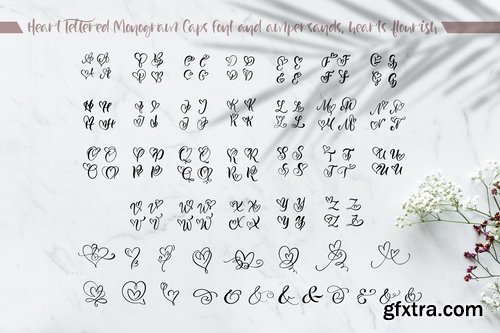 Heart lettered Monogram Caps Font and ampersands, hearts flourish
A A B B C C D D E E F F G G
A A B B C C D D E E F F G G
H H I I J J K K L L M M N N
H H I I J J K K L L M M N N
O O P P Q Q R R S S T T U U
O O P P Q Q R R S S T T U U
V V W W X X Y Y Z Z
V V W W X X Y Y Z Z
& & & & & & &
gfxtra.com